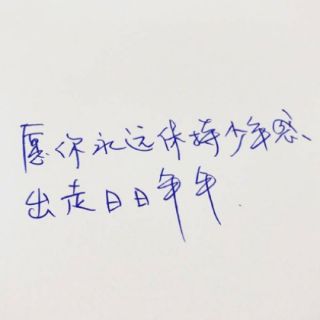 愿你永远保持少年感、
出走日日年年.